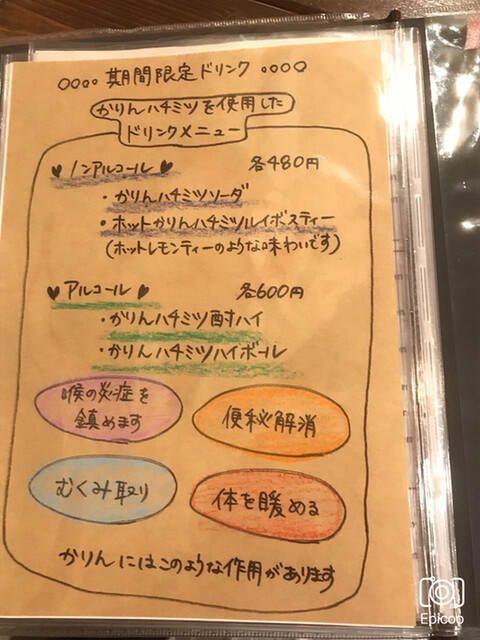 ○○○○ 期間限定ドリンク ○○○○
かりんハチミツを使用した
ドリンクメニュー
♥ノンアルコール♥ 各480円
・かりんハチミツソーダ
・ホットかりんハチミツルイボスティー
(ホットレモンティーのような味わいです)
♥アルコール♥ 各600円
・かりんハチミツ酎ハイ
・かりんハチミツハイボール
喉の炎症を
鎮めます
便秘解消
むくみ取り
体を暖める
かりんにはこのような作用があります
Epicoo